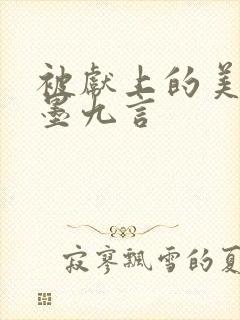 被献上的美
墨九言
寂寥飘雪的夏